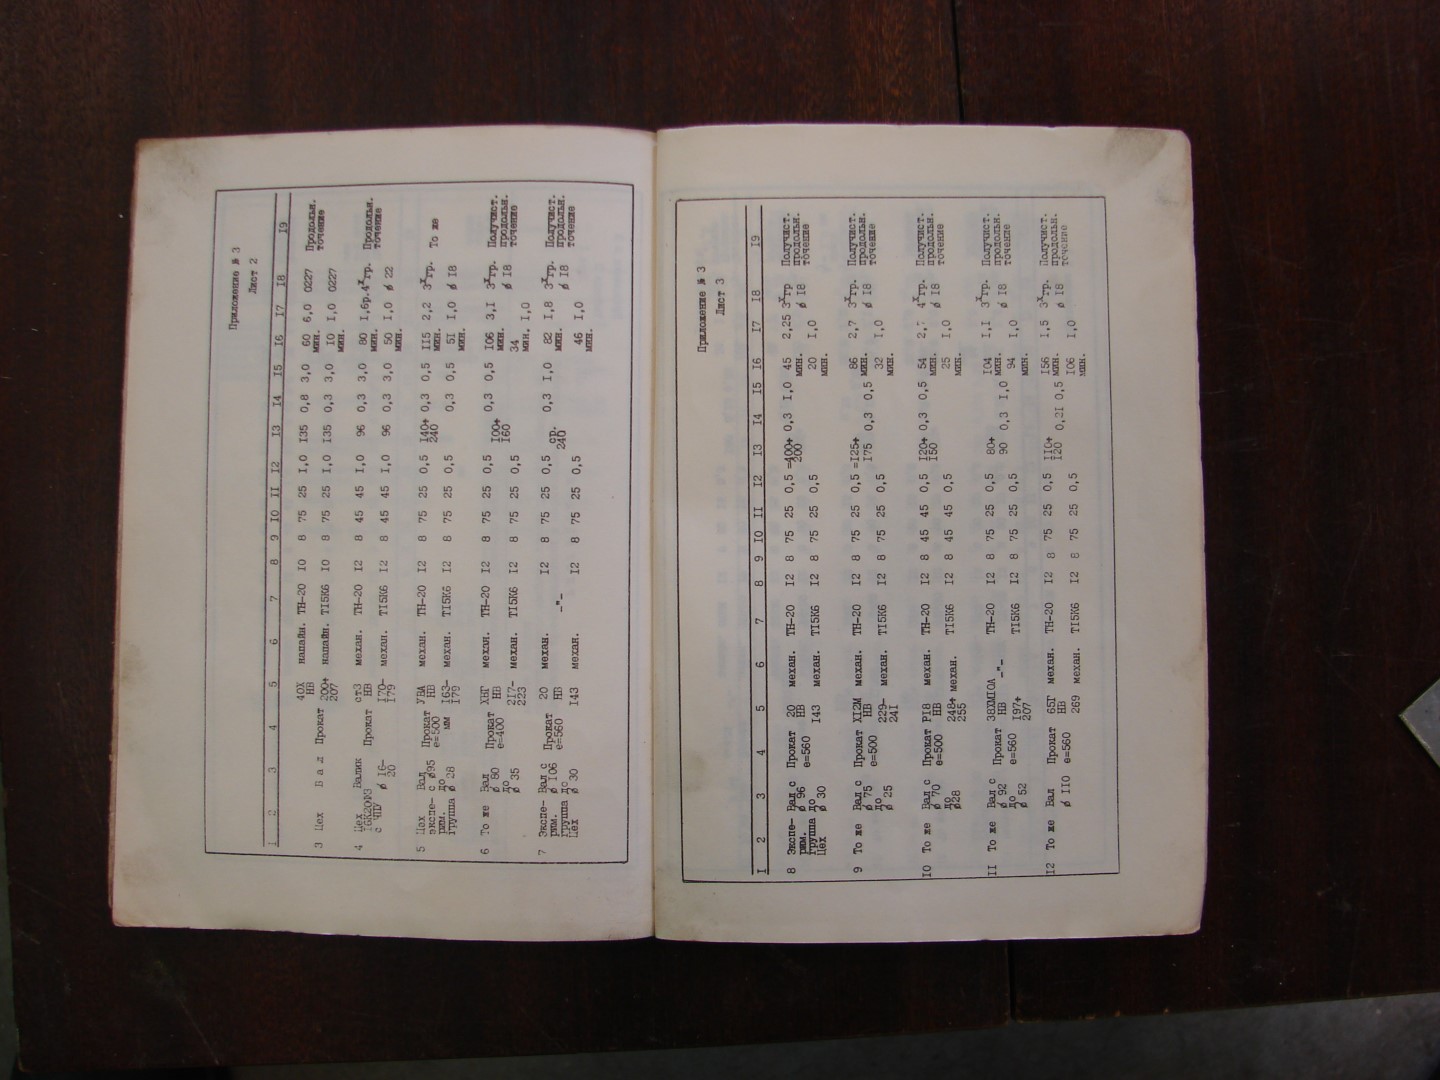 Приложение № 3
Лист 2
I 2 3 4 5 6 7 8 9 I0 II I2 I3 I4 I5 I6 I7 I8 I9
3 Цех В а л Прокат 40Х напайн. ТН-20 I0 8 75 25 I,0 I35 0,8 3,0 60 6,0 0227 Продольн.
НВ мин. точение
200+ напайн. TI5K6 I0 8 75 25 I,0 I35 0,3 3,0 I0 I,0 0227
207 мин.
4 Цех Валик Прокат ст3 механ. ТН-20 I2 8 45 45 I,0 96 0,3 3,0 80 I,6р. 4хгр. Продольн.
I6К20Ф3 НВ мин. точение
с ЧПУ ø I6- I70- механ. TI5K6 I2 8 45 45 I,0 96 0,3 3,0 50 I,0 ø 22
20 I79 мин.
5 Цех Вал Прокат У8А механ. ТН-20 I2 8 75 25 0,5 I40+ 0,3 0,5 II5 2,2 3хгр. То же
экспе- с ø95 e=500 НВ 240 мин.
рим. до мм I63- механ. TI5K6 I2 8 75 25 0,5 0,3 0,5 5I I,0 ø I8
группа ø 28 I79 мин.
6 То же Вал Прокат ХВГ механ. ТН-20 I2 8 75 25 0,5 I00+ 0,3 0,5 I06 3,I 3хгр. Получист.
ø 80 e=400 НВ I60 мин. ø I8 продольн.
до 2I7- механ. TI5K6 I2 8 75 25 0,5 34 точение
ø 35 223 мин. I,0
7 Экспе- Вал с Прокат 20 механ. -"- I2 8 75 25 0,5 ср. 0,3 I,0 82 I,8 3хгр. Получист.
рим. ø I06 e=560 НВ 240 мин. ø I8 продольн.
группа до I43 механ. I2 8 75 25 0,5 46 I,0 точение
Цех ø 30 мин.
Приложение № 3
Лист 3
I 2 3 4 5 6 7 8 9 I0 II I2 I3 I4 I5 I6 I7 I8 I9
8 Экспе- Вал с Прокат 20 механ. ТН-20 I2 8 75 25 0,5 =400+ 0,3 I,0 45 2,25 3хгр Получист.
рим. ø 96 e=560 НВ 200 мин. ø I8 продольн.
группа до I43 механ. TI5K6 I2 8 75 25 0,5 20 I,0 точение
Цех ø 30 мин.
9 То же Вал с Прокат XI2M механ. ТН-20 I2 8 75 25 0,5 =I25+ 0,3 0,5 86 2,7 3хгр. Получист.
ø 75 e=500 НВ I75 мин. ø I8 продольн.
до 229- механ. TI5K6 I2 8 75 25 0,5 32 I,0 точение
ø 25 24I мин.
I0 То же Вал с Прокат PI8 механ. ТН-20 I2 8 45 45 0,5 I20+ 0,3 0,5 54 4хгр. Получист.
ø 70 e=500 НВ I50 мин. ø I8 продольн.
до 248+ механ. TI5K6 I2 8 45 45 0,5 25 I,0 точение
ø28 255 мин.
II То же Вал с Прокат 38ХМIОА механ. ТН-20 I2 8 75 25 0,5 80+ 0,3 I,0 I04 I,I 3хгр. Получист.
ø 92 e=560 НВ -"- 90 мин. ø I8 продольн.
до I97+ TI5K6 I2 8 75 25 0,5 94 I,0 точение
ø 52 207 мин.
I2 То же Вал Прокат 65Г механ. ТН-20 I2 8 75 25 0,5 II0+ 0,2I 0,5 I56 I,5 3хгр. Получист.
ø II0 e=560 НВ I20 мин. ø I8 продольн.
269 механ. TI5K6 I2 8 75 25 0,5 I06 I,0 точение
мин.